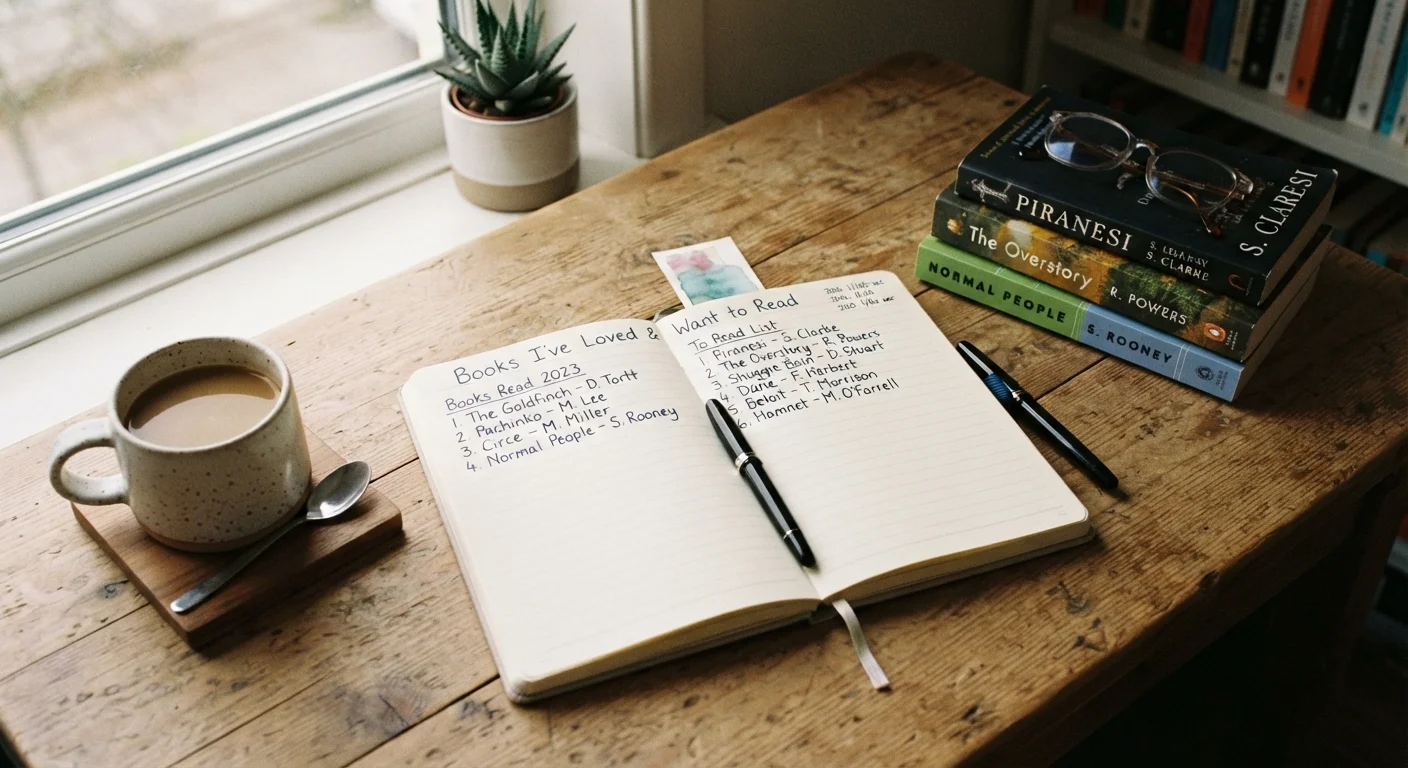 Books I've Loved &
Books Read 2023
1. The Goldfinch – D. Tartt
2. Pachinko – M. Lee
3. Circe – M. Miller
4. Normal People – S. Rooney
Want to Read
To Read List
1. Piranesi – S. Clarke
2. The Overstory – R. Powers
3. Shuggie Bain – D. Stuart
4. Dune – F. Herbert
5. Beloit – T. Morrison
6. Hamnet – M. O'Farrell
PIRANESI
S. CLARKE
S. CLARESI
The Overstory R. POWERS
NORMAL PEOPLE S. ROONEY